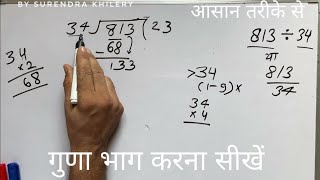 BY SURENDRA KHILERY
आसान तरीके से
34√813(23
68↓
133
34
×2
68
813 ÷ 34
या
813
34
>34
(1-9)×
34
×4
गुणा भाग करना सीखें